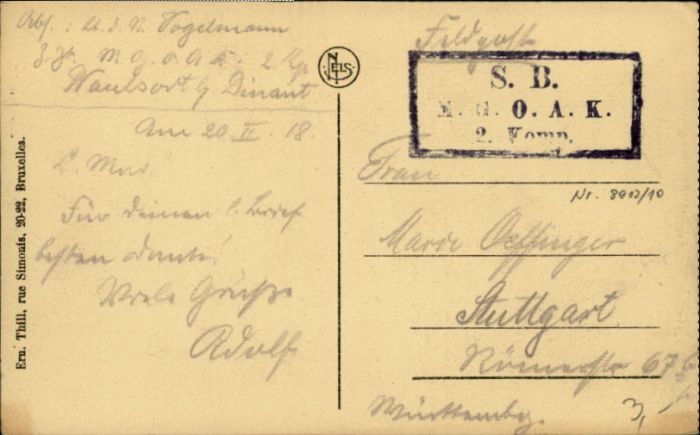 Abs.: Lt. d. R. Vogelmann
z. Zt. M.G.O.A.K. 2. Kp
Waulsort b/ Dinant
Am 20. II. 18.
L. Mas
Für deinen l. Brief
besten Dank!
Viele Grüße
Adolf
Ern. Thill, rue Simonis, 20-22, Bruxelles.
NELS
Feldpost
S. B.
M. G. O. A. K.
2. Komp.
Frau
Nr. 8912/10
Marie Oeffinger
Stuttgart
Römerstr. 67
Württembg.
3,